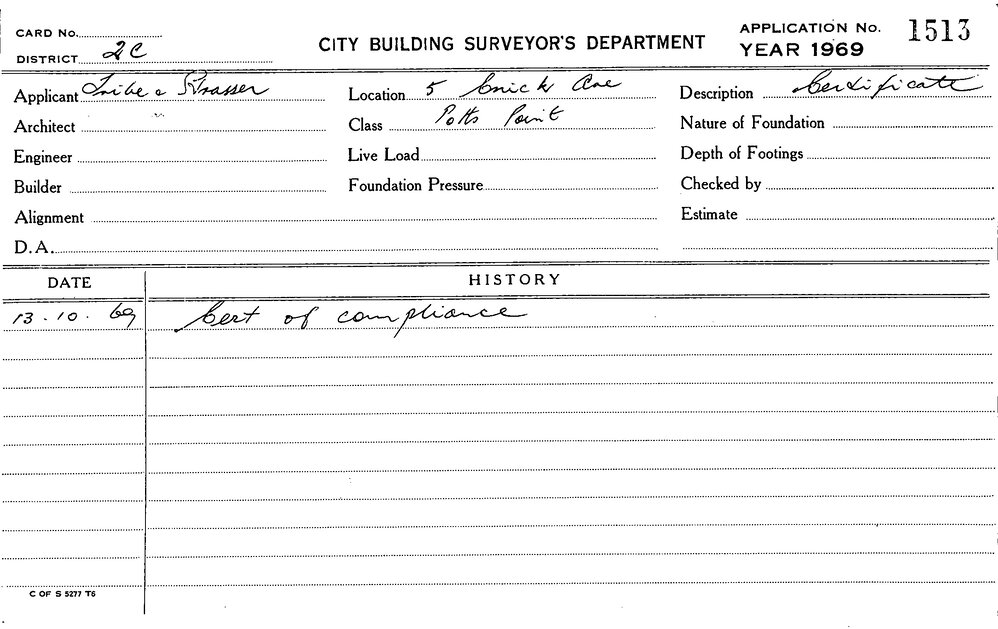 CARD No.
DISTRICT 2C
CITY BUILDING SURVEYOR'S DEPARTMENT
APPLICATION No. 1513
YEAR 1969
Applicant Tribe & Strasser
Location 5 Crick Ave
Description Certificate
Architect
Class Potts Point
Nature of Foundation
Engineer
Live Load
Depth of Footings
Builder
Foundation Pressure
Checked by
Alignment
Estimate
D.A.
DATE
HISTORY
13.10.69 Cert of compliance
C OF S 5277 T6